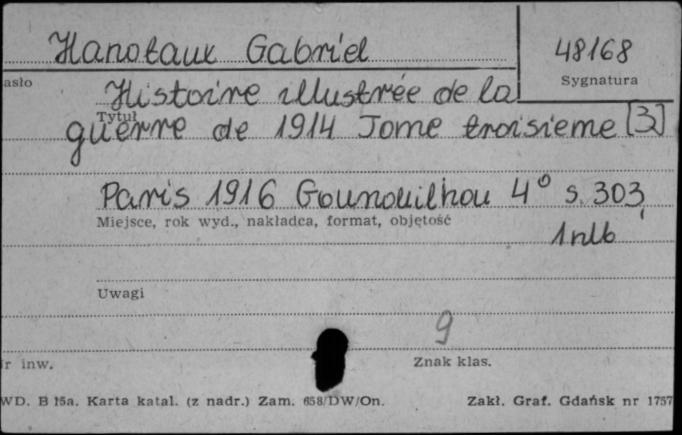 Hanotaux Gabriel
48168
asło
Sygnatura
Histoire illustrée de la
Tytuł
guerre de 1914 Tome troisieme [3]
Paris 1916 Gounouilhou 4° s. 303,
Miejsce, rok wyd., nakładca, format, objętość
1 nlb
Uwagi
9
r inw.
Znak klas.
WD. B 15a. Karta katal. (z nadr.) Zam. 658/DW/On.
Zakł. Graf. Gdańsk nr 1757